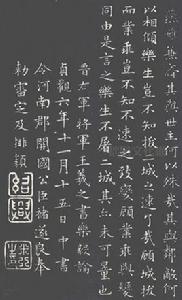 燕齊矣務其與世主何以殊哉其與鄰敵何
以相傾樂生豈不知拔二城之速了哉顧城拔
而業乖豈不知不速之致變顧業乖與變
同由是言之樂生不屠二城其亦未可量也
晉右軍將軍王羲之書樂毅論
貞觀六年十一月十五日中書
令河南郡開國公臣褚遂良奉
勅審定及排類